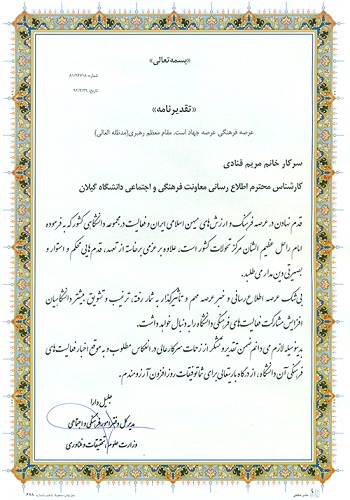 «بسمه‌تعالی»
شماره: ۸۱/۲۶۷۱۸
تاریخ: ۹۲/۲/۲۹
«تقدیرنامه»
عرصه فرهنگی عرصه جهاد است. مقام معظم رهبری(مدظله العالی)
سرکار خانم مریم قنادی
کارشناس محترم اطلاع رسانی معاونت فرهنگی و اجتماعی دانشگاه گیلان
قدم نهادن در عرصه فرهنگ و ارزش‌های میهن اسلامی ایران و فعالیت در مجموعه دانشگاهی کشور که به فرموده
امام راحل عظیم الشان مرکز تحولات کشور است، علاوه بر عزمی برخاسته از تعهد، قدم‌هایی محکم و استوار و
بصیرتی دین مدار می طلبد.
بی‌شک عرصه اطلاع رسانی و خبر عرصه مهم و تأثیرگذار به شمار رفته، ترغیب و تشویق بیشتر دانشگاهیان
افزایش مشارکت فعالیت‌های فرهنگی دانشگاه را به دنبال خواهد داشت.
بدینوسیله لازم می دانم ضمن تقدیر و تشکر از زحمات سرکار عالی در انعکاس مطلوب و به موقع اخبار فعالیت‌های
فرهنگی آن دانشگاه، از درگاه باریتعالی برای شما توفیقات روز افزون آرزومندم.
جلیل دارا
مدیر کل دفتر امور فرهنگی و اجتماعی
وزارت علوم، تحقیقات و فناوری